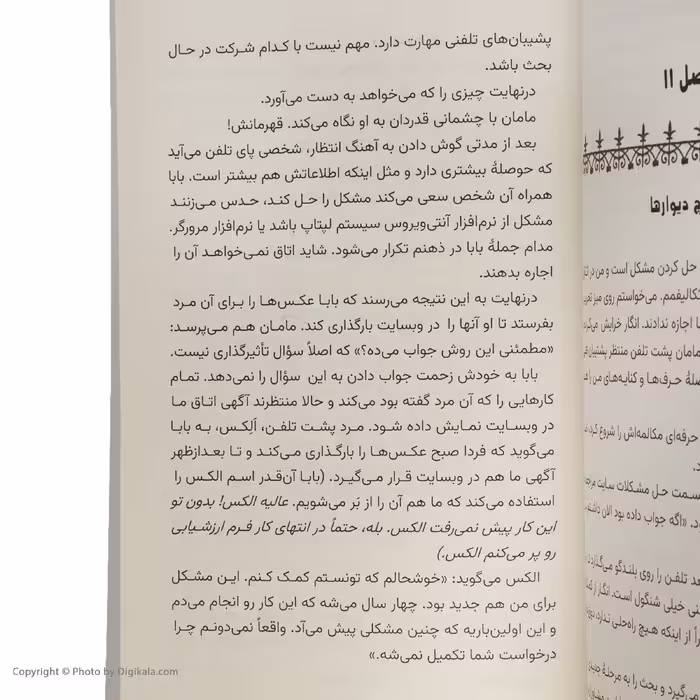 پشیبان‌های تلفنی مهارت دارد. مهم نیست با کدام شرکت در حال
بحث باشد.
درنهایت چیزی را که می‌خواهد به دست می‌آورد.
مامان با چشمانی قدردان به او نگاه می‌کند. قهرمانش!
بعد از مدتی گوش دادن به آهنگ انتظار، شخصی پای تلفن می‌آید
که حوصلهٔ بیشتری دارد و مثل اینکه اطلاعاتش هم بیشتر است. بابا
همراه آن شخص سعی می‌کند مشکل را حل کند، حدس می‌زنند
مشکل از نرم‌افزار آنتی‌ویروس سیستم لپتاپ باشد یا نرم‌افزار مرورگر.
مدام جملهٔ بابا در ذهنم تکرار می‌شود. شاید اتاق نمی‌خواهد آن را
اجاره بدهند.
درنهایت به این نتیجه می‌رسند که بابا عکس‌ها را برای آن مرد
بفرستد تا او آنها را در وبسایت بارگذاری کند. مامان هم می‌پرسد:
«مطمئنی این روش جواب می‌ده؟» که اصلاً سؤال تأثیرگذاری نیست.
بابا به خودش زحمت جواب دادن به این سؤال را نمی‌دهد. تمام
کارهایی را که آن مرد گفته بود می‌کند و حالا منتظرند آگهی اتاق ما
در وبسایت نمایش داده شود. مرد پشت تلفن، اَلِکس، به بابا
می‌گوید که فردا صبح عکس‌ها را بارگذاری می‌کند و تا بعدازظهر
آگهی ما هم در وبسایت قرار می‌گیرد. (بابا آن‌قدر اسم الکس را
استفاده می‌کند که ما هم آن را از بَر می‌شویم. عالیه الکس! بدون تو
این کار پیش نمی‌رفت الکس. بله، حتماً در انتهای کار فرم ارزشیابی
رو پر می‌کنم الکس.)
الکس می‌گوید: «خوشحالم که تونستم کمک کنم. این مشکل
برای من هم جدید بود. چهار سال می‌شه که این کار رو انجام می‌دم
و این اولین‌باریه که چنین مشکلی پیش می‌آد. واقعاً نمی‌دونم چرا
درخواست شما تکمیل نمی‌شه.»
۱۱
دیوارها
حل کردن مشکل است و من در
می‌خواستم روی میز
اجازه ندادند. انگار خرابش
مامان پشت تلفن منتظر
حرف‌ها و کنایه‌های من را
حرفه‌ای مکالمه‌اش را شروع کرد،
حل مشکلات سایت
«اگه جواب داده بود الان
تلفن را روی بلندگو
خیلی شنگول است. انگار از
از اینکه هیچ راه‌حلی ندارد،
و بحث را به مرحلهٔ
Copyright © Photo by Digikala.com